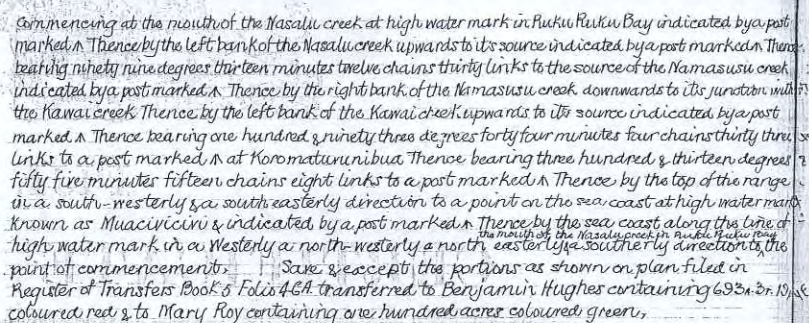 Commencing at the mouth of the Nasalu creek at high water mark in Ruku Ruku Bay indicated by a post
marked ʌ Thence by the left bank of the Nasalu creek upwards to its source indicated by a post marked ʌ Thence
bearing ninety nine degrees thirteen minutes twelve chains thirty links to the source of the Namasusu creek
indicated by a post marked ʌ Thence by the right bank of the Namasusu creek downwards to its junction with
the Kawai creek Thence by the left bank of the Kawai creek upwards to its source indicated by a post
marked ʌ Thence bearing one hundred & ninety three degrees forty four minutes four chains thirty three
links to a post marked ʌ at Koromaturunibua Thence bearing three hundred & thirteen degrees
fifty five minutes fifteen chains eight links to a post marked ʌ Thence by the top of the range
in a south-westerly & a south easterly direction to a point on the sea coast at high water mark
known as Muacivicivi & indicated by a post marked ʌ Thence by the sea coast along the line of
high water mark in a Westerly a north-westerly a north easterly & a southerly direction to the mouth of the Nasalu creek in Ruku Ruku Bay the
point of commencement. Save & except the portions as shown on plan filed in
Register of Transfers Book 5 Folio 464 transferred to Benjamin Hughes containing 693a. 3r.
coloured red & to Mary Roy containing one hundred acres coloured green,